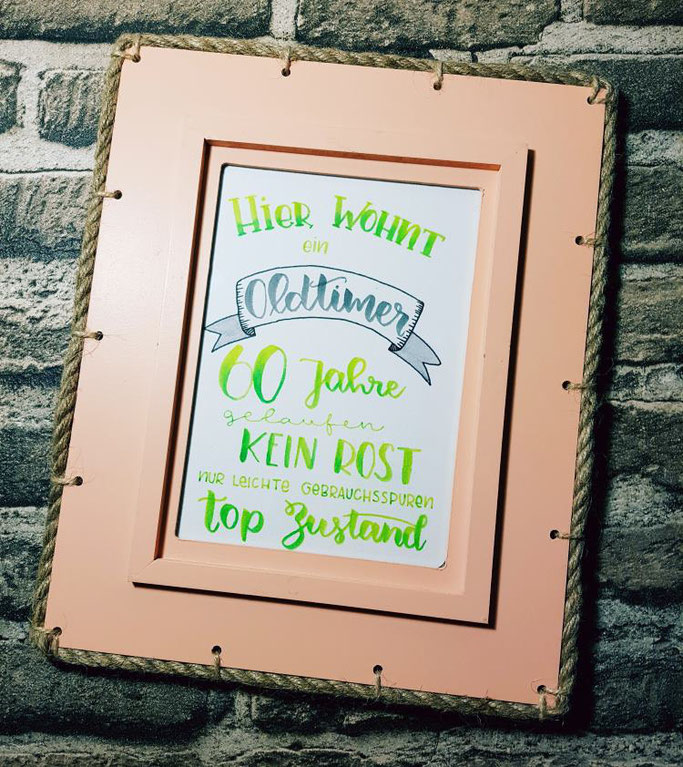 Hier Wohnt
ein
Oldtimer
60 Jahre
gelaufen
KEIN ROST
NUR LEICHTE GEBRAUCHSSPUREN
top Zustand